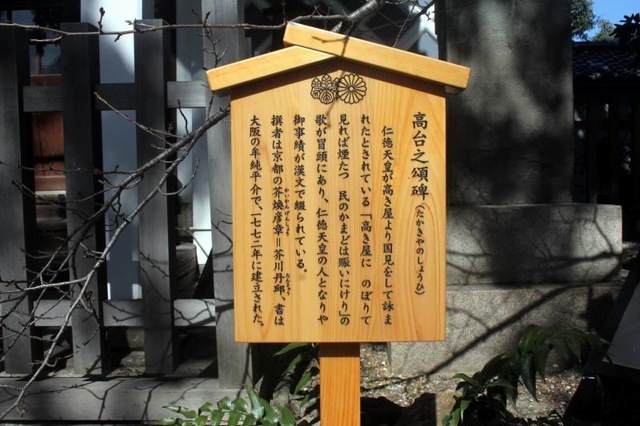 高台之頌碑(たかきやのしょうひ)
仁徳天皇が高き屋より国見をして詠ま
れたとされている「高き屋に のぼりて
見れば煙たつ 民のかまどは賑いにけり」の
歌が冒頭にあり、仁徳天皇の人となりや
御事績が漢文で綴られている。
撰者は京都の芥煥彦章=芥川丹邱、書は
大阪の牟純平介で、一七七二年に建立された。